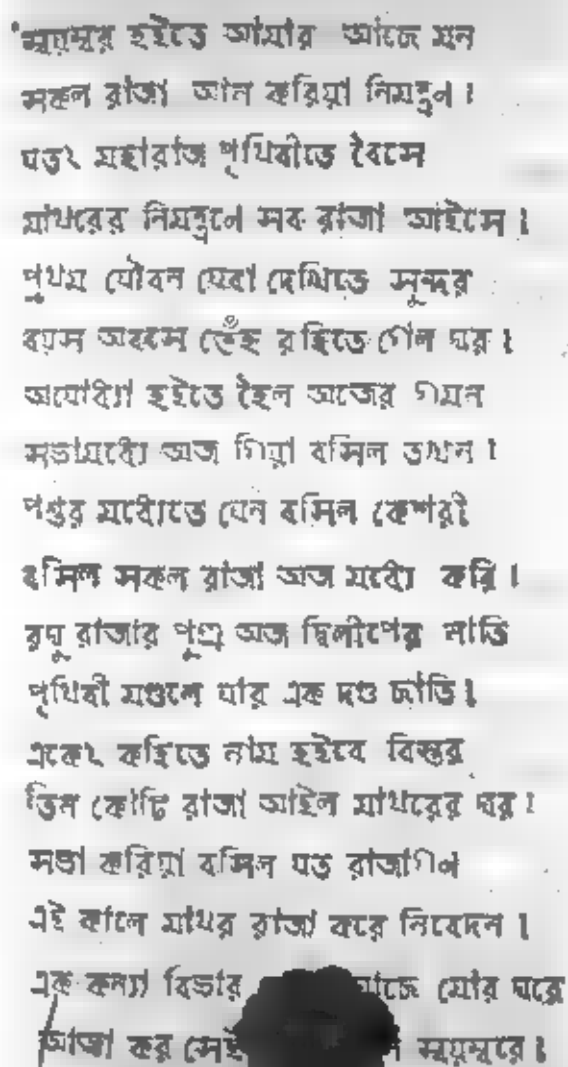 স্বয়ম্বর হইতে আমার আছে মন
সকল রাজা আন করিয়া নিমন্ত্রণ।
যত২ মহারাজ পৃথিবীতে বৈসে
মাথরের নিমন্ত্রণে সব রাজা আইসে।
প্রথম যৌবন যেবা দেখিতে সুন্দর
বয়স অবসে তেঁহ রহিতে গেল ঘর।
অযোধ্যা হইতে হৈল অজের গমন
সভামধ্যে অজ গিয়া বসিল তখন।
পশুর মধ্যেতে যেন বসিল কেশরী
বসিল সকল রাজা অজ মধ্যে করি।
রঘু রাজার পুত্র অজ দ্বিলীপের নাতি
পৃথিবী মণ্ডলে যার এক দণ্ড ছাতি।
একে২ কহিতে নাম হইবে বিস্তর
তিন কোটি রাজা আইল মাথরের ঘর।
সভা করিয়া বসিল যত রাজাগণ
এই কালে মাথর রাজা করে নিবেদন।
এক কন্যা বিভার আছে মোর ঘরে
আজ্ঞা কর সেই স্বয়ম্বরে।